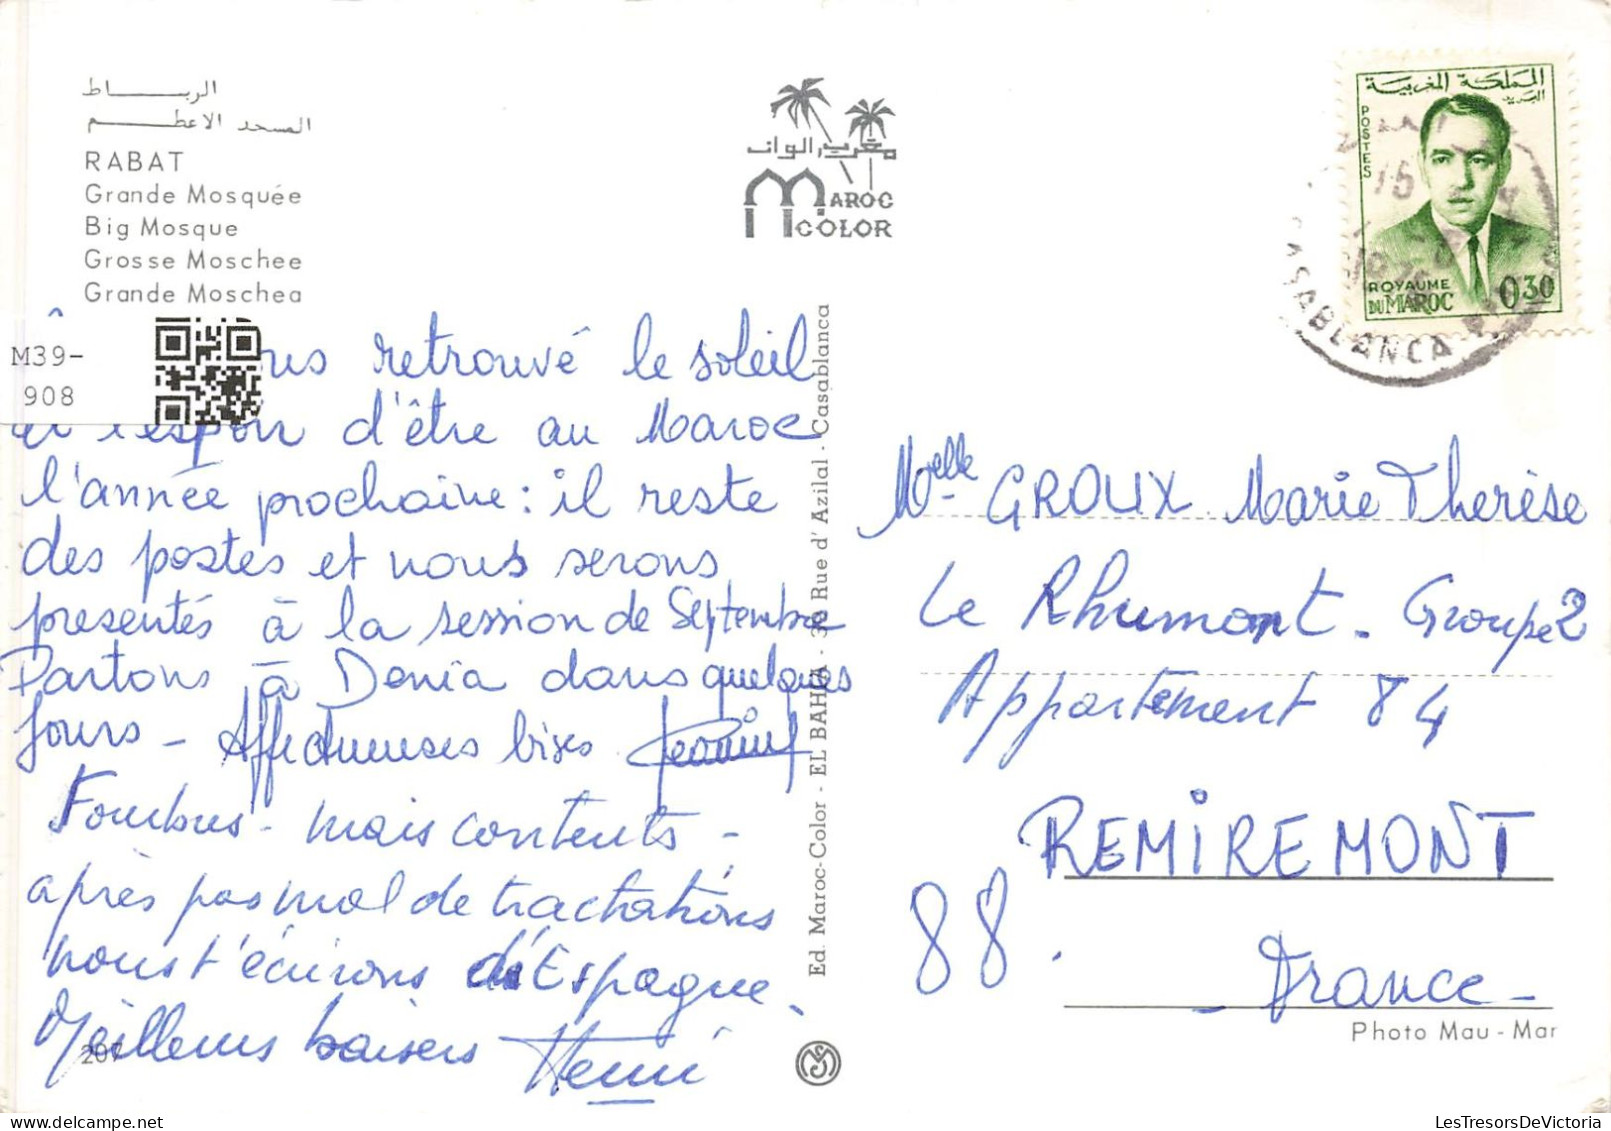 الرباط
المسجد الاعظم
RABAT
Grande Mosquée
Big Mosque
Grosse Moschee
Grande Moschea
M39-
908
MAROC
COLOR
المملكة المغربية
البريد
POSTES
ROYAUME
DU MAROC
0.30
CASABLANCA
retrouvé le soleil
et l'espoir d'être au Maroc
l'année prochaine : il reste
des postes et nous serons
présentés à la session de Septembre
Partons à Denia dans quelques
jours - Affectueuses bises
- mais contents -
après pas mal de tractations
nous t'écrirons d'Espagne.
Meilleurs baisers Henri
207
Ed. Maroc-Color - EL BAHIA - 30 Rue d'Azilal - Casablanca
Melle GROUX Marie Thérèse
Le Rhumont - Groupe 2
Appartement 84
REMIREMONT
88.
- France -
Photo Mau - Mar
LesTresorsDeVictoria